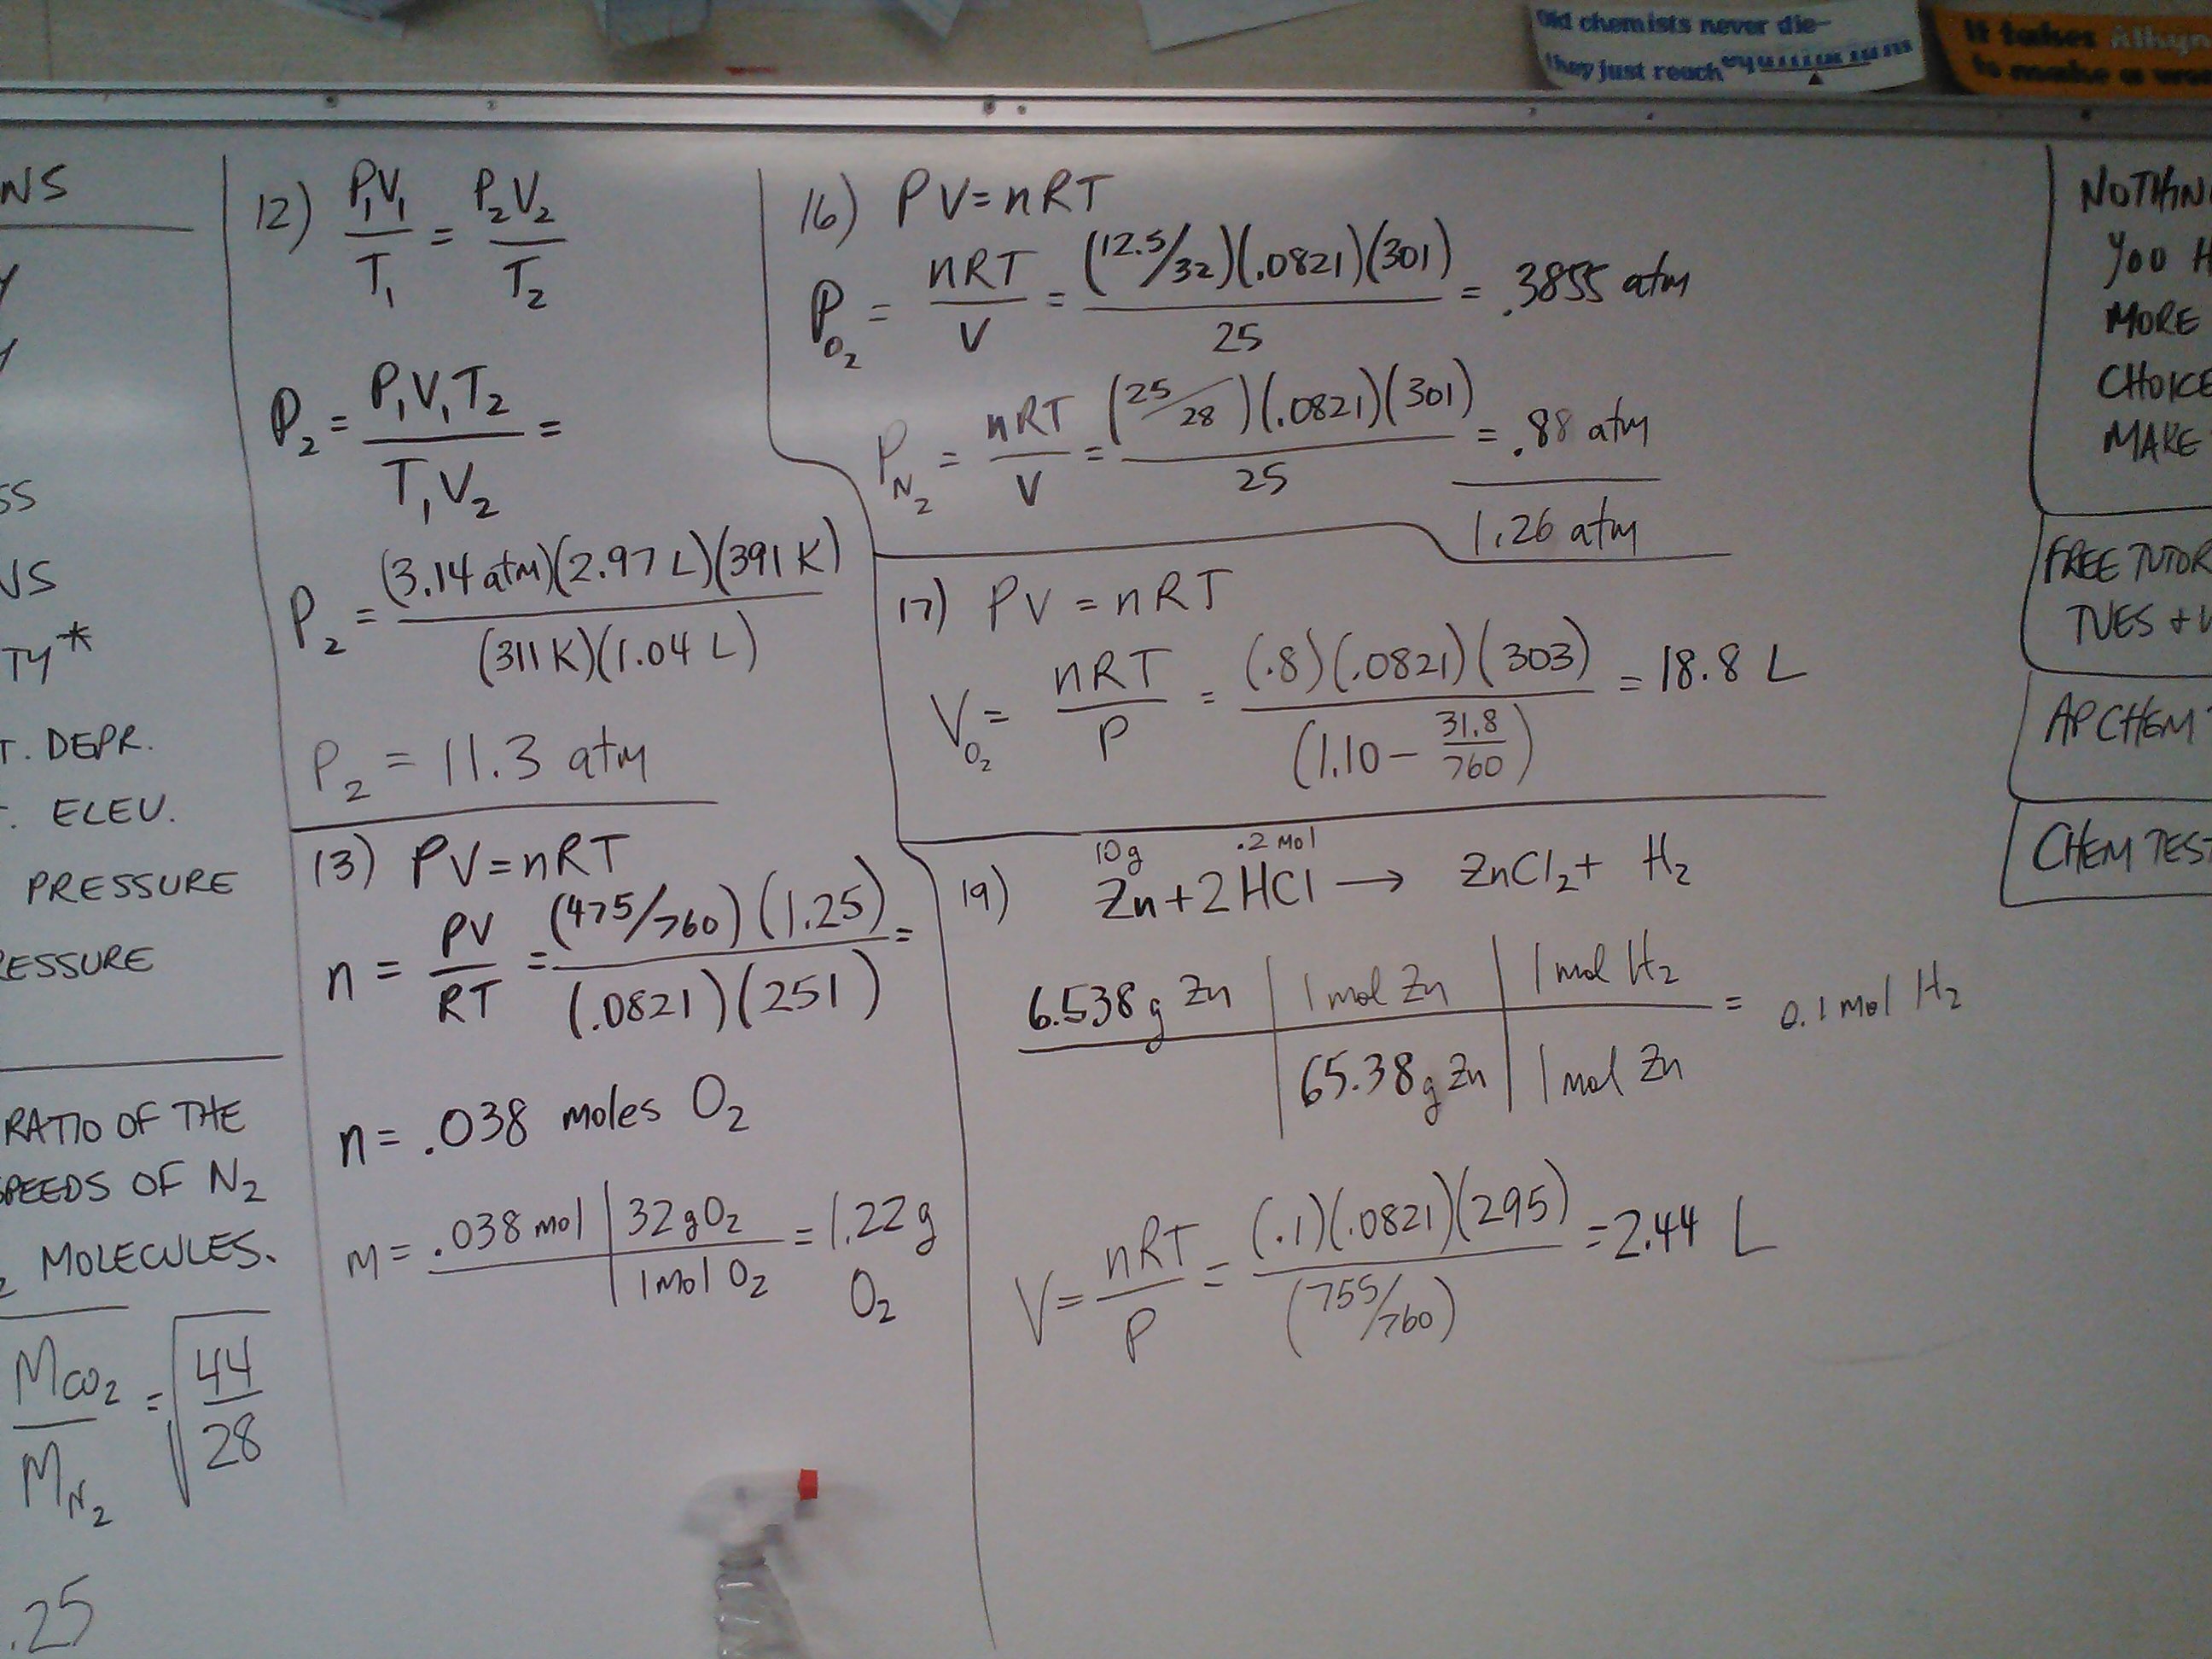 Old chemists never die—
they just reach equilibriums
It takes Alkyn
to make a wor
NS
Y
Y
SS
NS
TY*
T. DEPR.
. ELEV.
PRESSURE
RESSURE
RATIO OF THE
SPEEDS OF N₂
₂ MOLECULES.
M_CO₂ / M_N₂ = √(44/28)
.25
12) P₁V₁/T₁ = P₂V₂/T₂
P₂ = P₁V₁T₂ / T₁V₂ =
P₂ = (3.14 atm)(2.97 L)(391 K) / (311 K)(1.04 L)
P₂ = 11.3 atm
13) PV=nRT
n = PV/RT = (475/760)(1.25) / (.0821)(251) =
n = .038 moles O₂
m = .038 mol | 32 g O₂ / 1 mol O₂ = 1.22 g O₂
16) PV=nRT
P_O₂ = nRT/V = (12.5/32)(.0821)(301) / 25 = .3855 atm
P_N₂ = nRT/V = (25/28)(.0821)(301) / 25 = .88 atm
1.26 atm
17) PV = nRT
V_O₂ = nRT/P = (.8)(.0821)(303) / (1.10 − 31.8/760) = 18.8 L
10g .2 mol
19) Zn + 2HCl → ZnCl₂ + H₂
6.538 g Zn | 1 mol Zn | 1 mol H₂ = 0.1 mol H₂
65.38 g Zn | 1 mol Zn
V = nRT/P = (.1)(.0821)(295) / (755/760) = 2.44 L
NOTHIN
YOU H
MORE
CHOICE
MAKE
FREE TUTOR
TUES +
AP CHEM
CHEM TEST